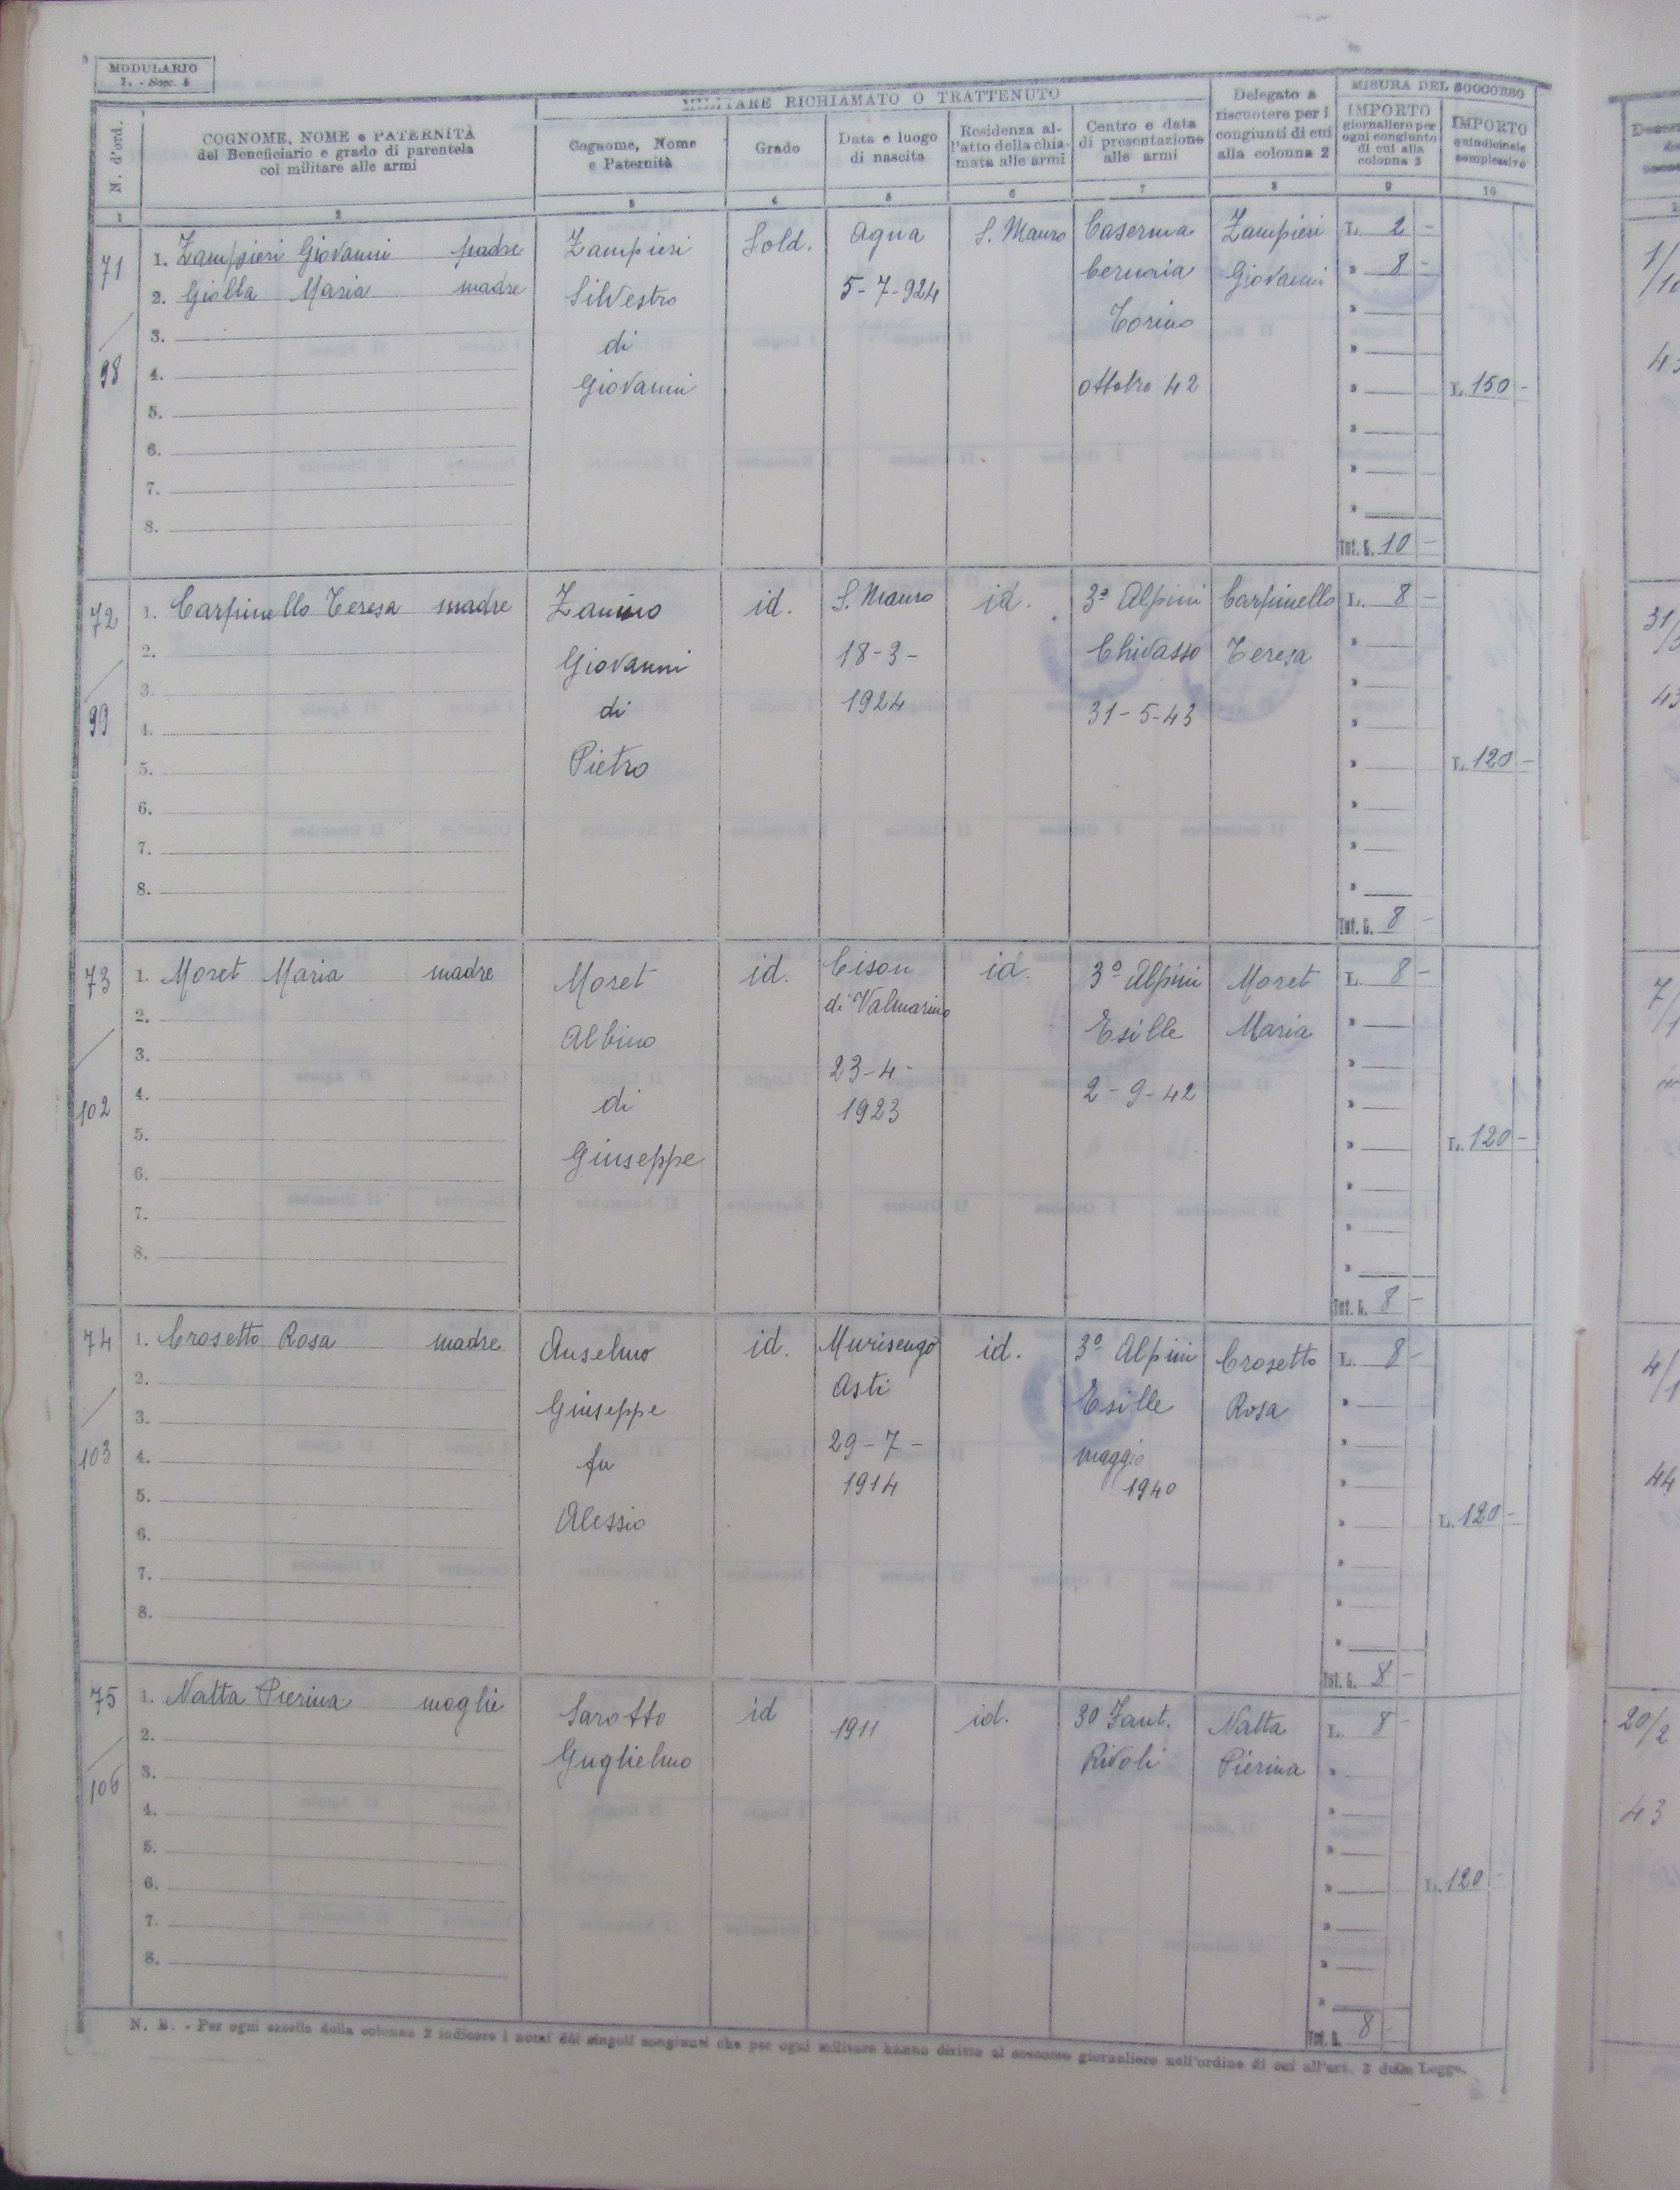 MODULARIO
I. - Socc. 4
N. d'ord.
COGNOME, NOME e PATERNITÀ
del Beneficiario e grado di parentela
col militare alle armi
MILITARE RICHIAMATO O TRATTENUTO
Cognome, Nome
e Paternità
Grado
Data e luogo
di nascita
Residenza al-
l'atto della chia-
mata alle armi
Centro e data
di presentazione
alle armi
Delegato a
riscuotere per i
congiunti di cui
alla colonna 2
MISURA DEL SOCCORSO
IMPORTO
giornaliero per
ogni congiunto
di cui alla
colonna 2
IMPORTO
quindicinale
complessivo
1 2 3 4 5 6 7 8 9 10
71
98
1. Zampieri Giovanni padre
2. Giolla Maria madre
3.
4.
5.
6.
7.
8.
Zampieri
Silvestro
di
Giovanni
Sold.
Agna
5-7-924
S. Mauro
Caserma
Cernaia
Torino
ottobre 42
Zampieri
Giovanni
L. 2 -
» 8 -
Tot. L. 10 -
L. 150 -
72
99
1. Carpinello Teresa madre
2.
3.
4.
5.
6.
7.
8.
Zanino
Giovanni
di
Pietro
id.
S. Mauro
18-3-
1924
id.
3º Alpini
Chivasso
31-5-43
Carpinello
Teresa
L. 8 -
Tot. L. 8 -
L. 120 -
73
102
1. Moret Maria madre
2.
3.
4.
5.
6.
7.
8.
Moret
Albino
di
Giuseppe
id.
Cison
di Valmarino
23-4-
1923
id.
3º Alpini
Esille
2-9-42
Moret
Maria
L. 8 -
Tot. L. 8 -
L. 120 -
74
103
1. Crosetto Rosa madre
2.
3.
4.
5.
6.
7.
8.
Anselmo
Giuseppe
fu
Alessio
id.
Murisengo
Asti
29-7-
1914
id.
3º Alpini
Esille
maggio
1940
Crosetto
Rosa
L. 8 -
Tot. L. 8 -
L. 120 -
75
106
1. Natta Pierina moglie
2.
3.
4.
5.
6.
7.
8.
Sarotto
Guglielmo
id
1911
id.
30 Fant.
Rivoli
Natta
Pierina
L. 8 -
Tot. L. 8 -
L. 120 -
N. B. - Per ogni casella della colonna 2 indicare i nomi dei singoli congiunti che per ogni militare hanno diritto al soccorso giornaliero nell'ordine di cui all'art. 3 della Legge.
31/
43
7/
4/
44
20/2
43